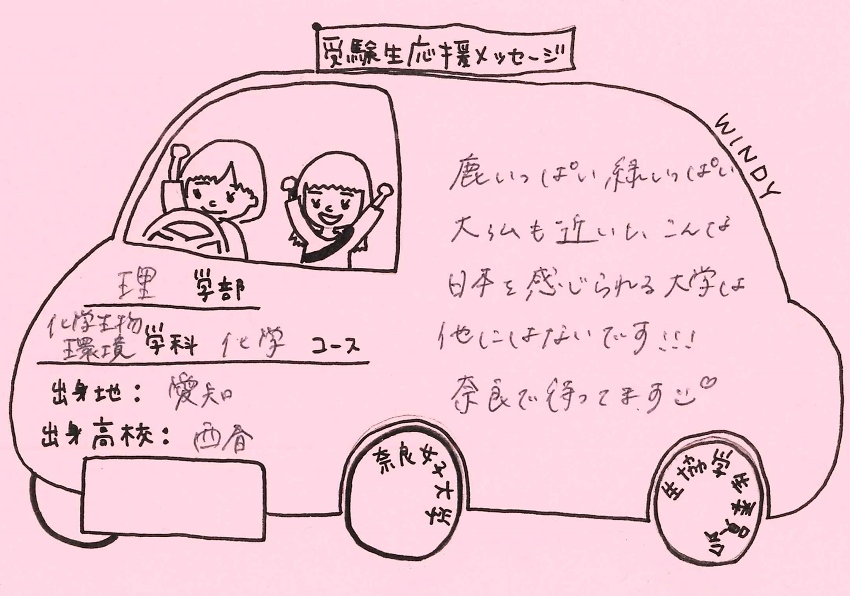 受験生応援メッセージ
WINDY
鹿いっぱい 緑いっぱい
大仏も近いし、こんな
日本を感じられる大学は
他にはないです!!!
奈良で待ってます
理 学部
化学生物環境 学科 化学 コース
出身地: 愛知
出身高校: 西春
奈良女子大学
生協学生委員会